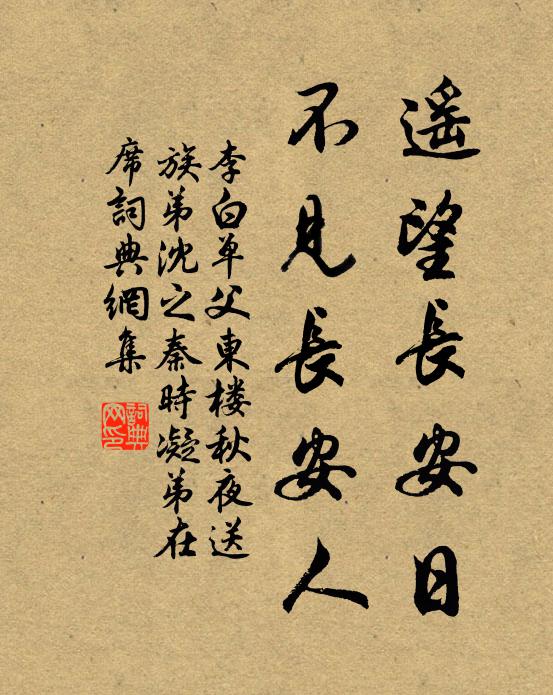 遥望長安日
不見長安人
李白单父東楼秋夜送
族弟沈之秦時凝弟在
席詞典網集
詞典網印